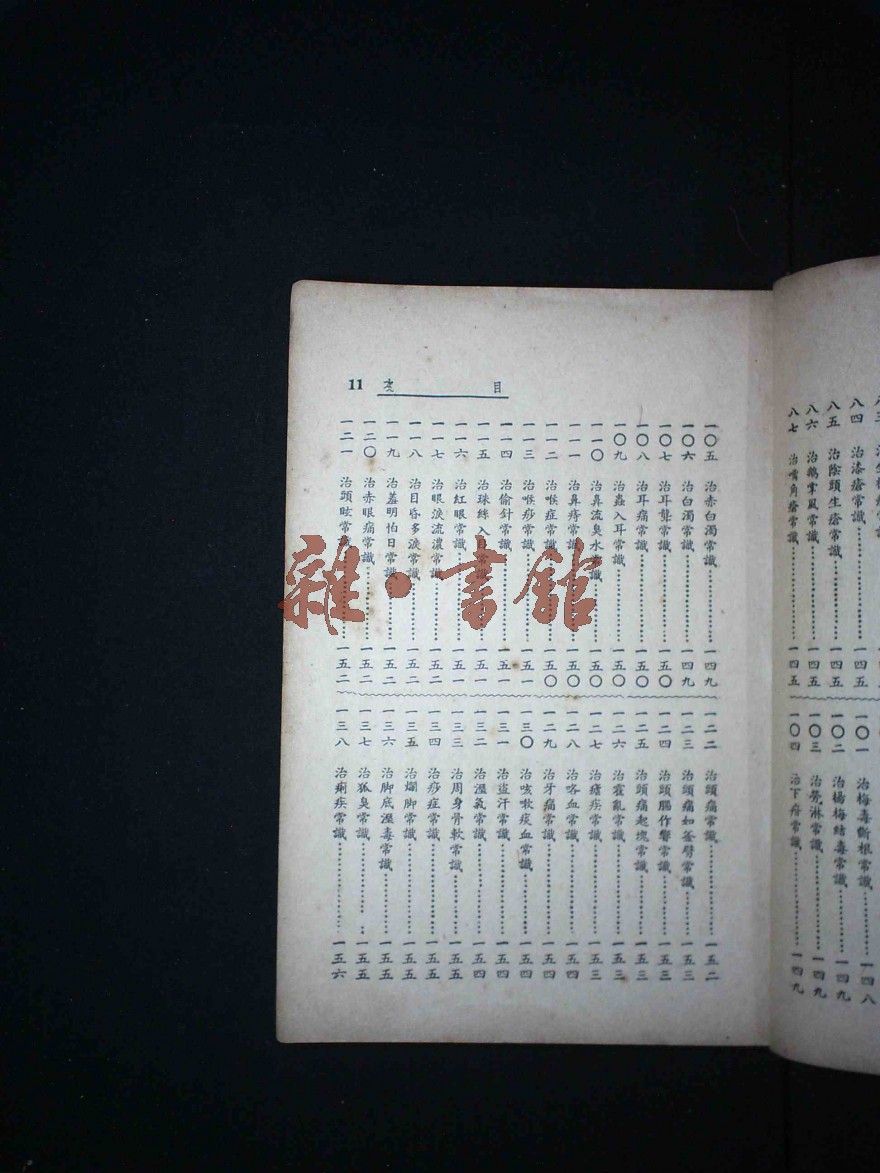 八四 治漆瘡常識……一四五
八五 治陰頭生瘡常識……一四五
八六 治鵝掌風常識……一四五
八七 治嘴角瘡常識……一四五
一〇一 治梅毒斷根常識……一四八
一〇二 治楊梅結毒常識……一四九
一〇三 治勞淋常識……一四九
一〇四 治下疳常識……一四九
目次 11
一〇五 治赤白濁常識……一四九
一〇六 治白濁常識……一四九
一〇七 治耳聾常識……一五〇
一〇八 治耳痛常識……一五〇
一〇九 治蟲入耳常識……一五〇
一一〇 治鼻流臭水常識……一五〇
一一一 治鼻痔常識……一五〇
一一二 治喉症常識……一五〇
一一三 治喉痧常識……一五一
一一四 治偷針常識……一五一
一一五 治珠絲入目常識……一五一
一一六 治紅眼常識……一五一
一一七 治眼淚流濃常識……一五二
一一八 治目昏多淚常識……一五二
一一九 治羞明怕日常識……一五二
一二〇 治赤眼痛常識……一五二
一二一 治頭眩常識……一五二
一二二 治頭痛常識……一五二
一二三 治頭痛如釜劈常識……一五三
一二四 治頭腦作響常識……一五三
一二五 治頭痛起塊常識……一五三
一二六 治霍亂常識……一五三
一二七 治瘧疾常識……一五三
一二八 治咯血常識……一五四
一二九 治牙痛常識……一五四
一三〇 治咳嗽痰血常識……一五四
一三一 治盜汗常識……一五四
一三二 治溼氣常識……一五四
一三三 治周身骨軟常識……一五五
一三四 治痧症常識……一五五
一三五 治爛脚常識……一五五
一三六 治脚底溼毒常識……一五五
一三七 治狐臭常識……一五五
一三八 治痢疾常識……一五六
雜·書館